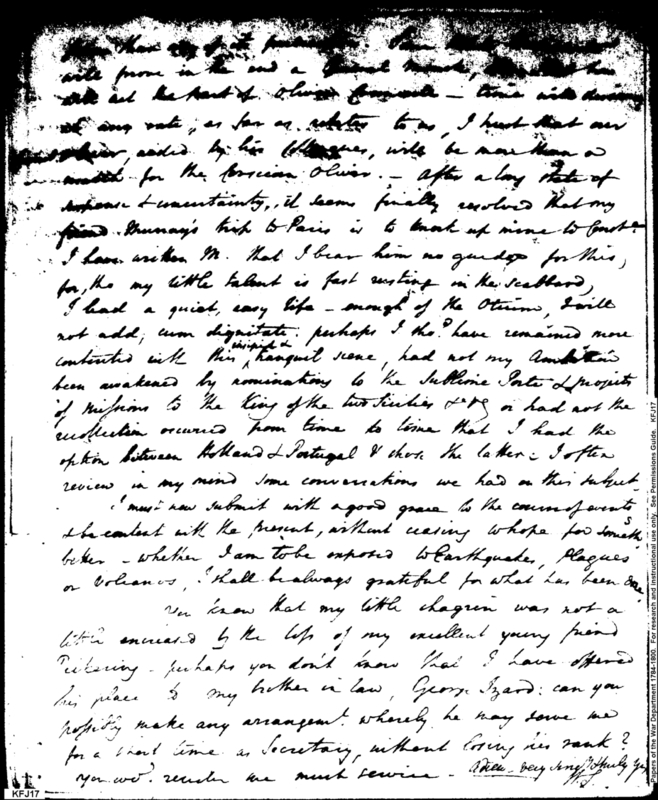 will prove in the end a General Monck,
will act the part of Oliver Cromwell - time will discover
at any rate, as far as relates to us, I trust that our
Oliver, aided by his Colleagues, will be more than a
match for the Corsican Oliver. - After a long state of
suspense & uncertainty, it seems finally resolved that my
friend Murray's trip to Paris is to knock up mine to Const.e
I have written M. that I bear him no grudge for this,
for, tho my little talent is fast rusting in the scabbard,
I lead a quiet, easy life - enough of the Otium, I will
not add, cum dignitate. perhaps I sho.d have remained more
contented with this insipid & tranquil scene, had not my Ambition
been awakened by nominations to the Sublime Porte & projects
of Missions to the King of the two Sicilies &c or had not the
recollection occurred from time to time that I had the
option between Holland & Portugal & chose the latter - I often
review in my mind some conversations we had on this subject -
I must now submit with a good grace to the course of events
& be content with the present, without ceasing to hope for someth.g
better - whether I am to be exposed to Earthquakes, Plagues
or Volcanos, I shall be always grateful for what has been done
You know that my little chagrin was not a
little encreased by the loss of my excellent young friend
Pickering - perhaps you don't know that I have offered
his place to my brother in law, George Izard: can you
possibly make any arrangem.t whereby he may serve me
for a short time as Secretary, without losing his rank?
You wo.d render me much service - Adieu - very sincy & truly Yrs
KFJ17
Papers of the War Department 1784-1800. For research and instructional use only. See Permissions Guide. KFJ17